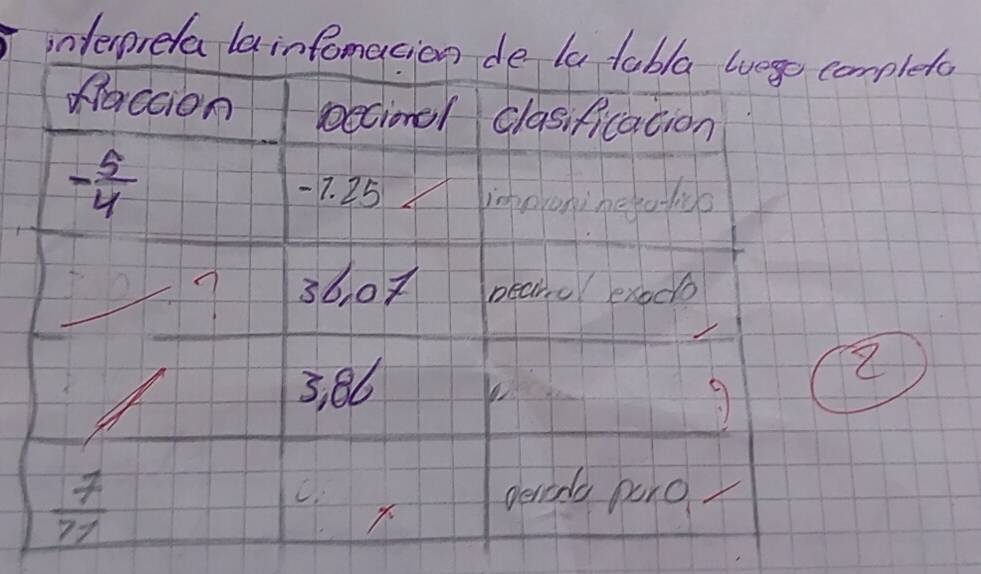 interpreta la infomacion de la tabla luego completa
fraccion Decimal Clasificacion
-5/4 -1.25 negativo
? 36,07 Decimal exacto
3,86 ?
7 periodo puro
2